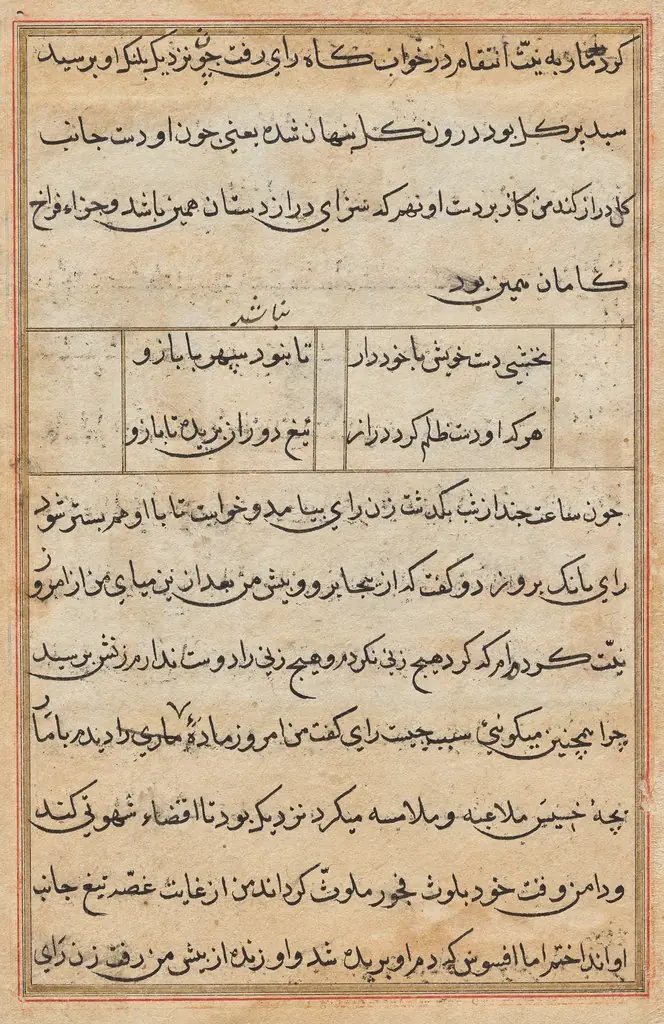 کرد مار به نیت انتقام در خواب کاه رای رفت چون نزدیک پلنک او برسید
سبد پر کل بود درون کل پنهان شده یعنی جون او دست جانب
کل دراز کند من کاز بر دست او نهم که سزای دراز دستان همین باشد و جزاء فراخ
کامان همین بود
نباشد
نخشبی دست خویش با خود دار تا بنود سپهر با بازو
هر که او دست ظلم کرد دراز تیغ دوران بریده تا بازو
جون ساعت جند از شب بکذشت زن رای بیامد و خواست تا با او هم بستر شود
رای بانک برو زد و کفت که از ینجا برو و پیش من بعد ازین میای من از امروز
نیت کرده‌ام که کرد هیج زنی نکردم و هیج زنی را دوست ندارم زنش برسید
جرا همچنین میکوئی سبب جیست رای کفت من امروز مادهٔ ماری را دیدم با مار
بچهٔ خسیس ملاعبه و ملامسه میکرد نزدیک بود تا اقضاء شهوتی کند
و دامن وقت خود بلوث فجور ملوث کرداند من از غایت غصه تیغ جانب
او انداختم اما افسوس که دم او بریده شد و او زنده از پیش من رفت زن رای